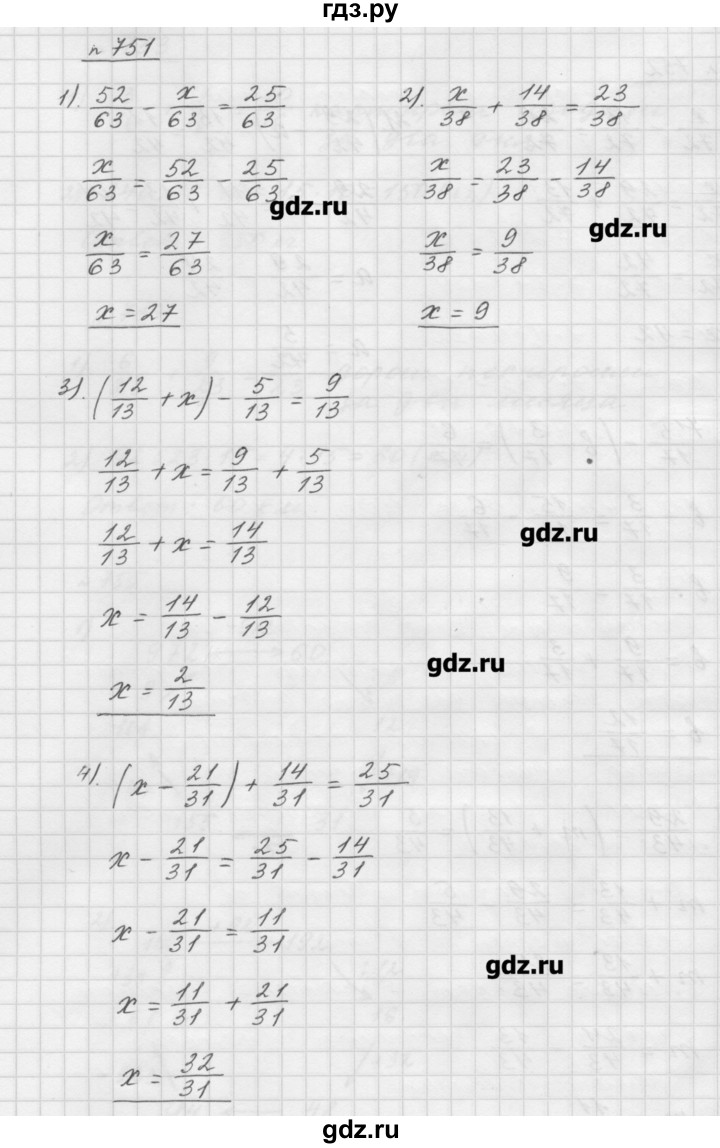 гдз.ру
n 751
1). 52/63 - x/63 = 25/63
x/63 = 52/63 - 25/63
x/63 = 27/63
x = 27
2). x/38 + 14/38 = 23/38
x/38 = 23/38 - 14/38
x/38 = 9/38
x = 9
gdz.ru
gdz.ru
3). (12/13 + x) - 5/13 = 9/13
12/13 + x = 9/13 + 5/13
12/13 + x = 14/13
x = 14/13 - 12/13
x = 2/13
gdz.ru
gdz.ru
4). (x - 21/31) + 14/31 = 25/31
x - 21/31 = 25/31 - 14/31
x - 21/31 = 11/31
x = 11/31 + 21/31
x = 32/31
gdz.ru
gdz.ru